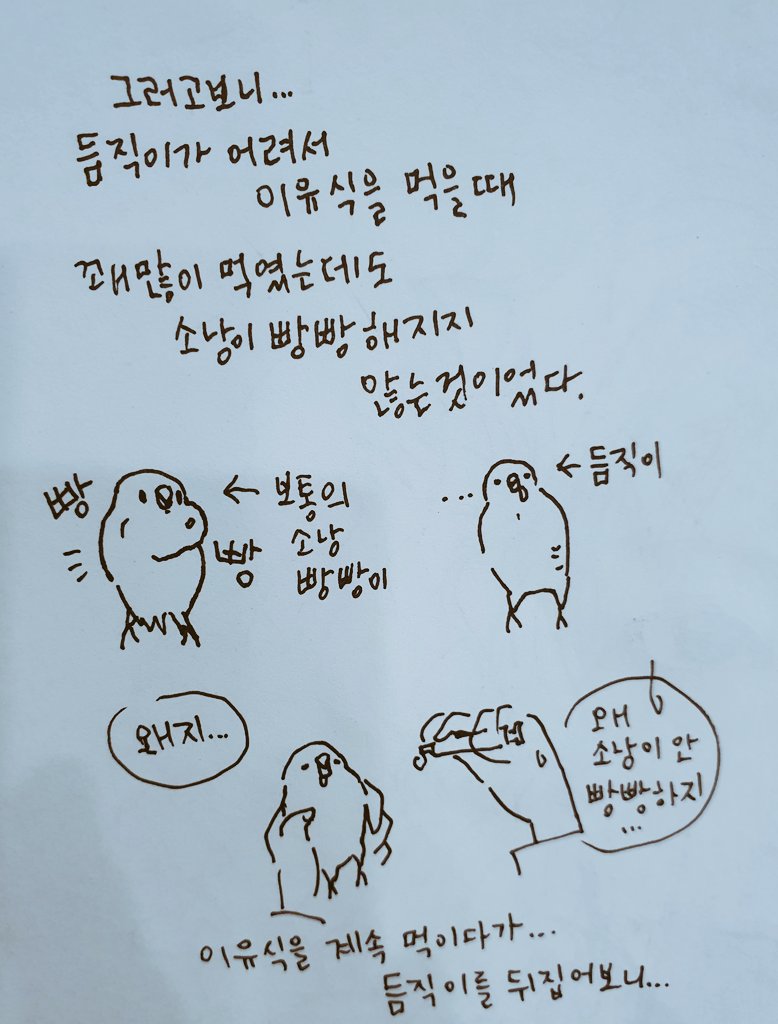 그러고보니...
듬직이가 어려서
이유식을 먹을때
꽤많이 먹였는데도
소낭이 빵빵해지지
않는것이었다.
빵
빵
← 보통의
소낭
빵빵이
...
← 듬직이
왜지...
왜
소낭이 안
빵빵하지
...
이유식을 계속 먹이다가...
듬직이를 뒤집어보니...